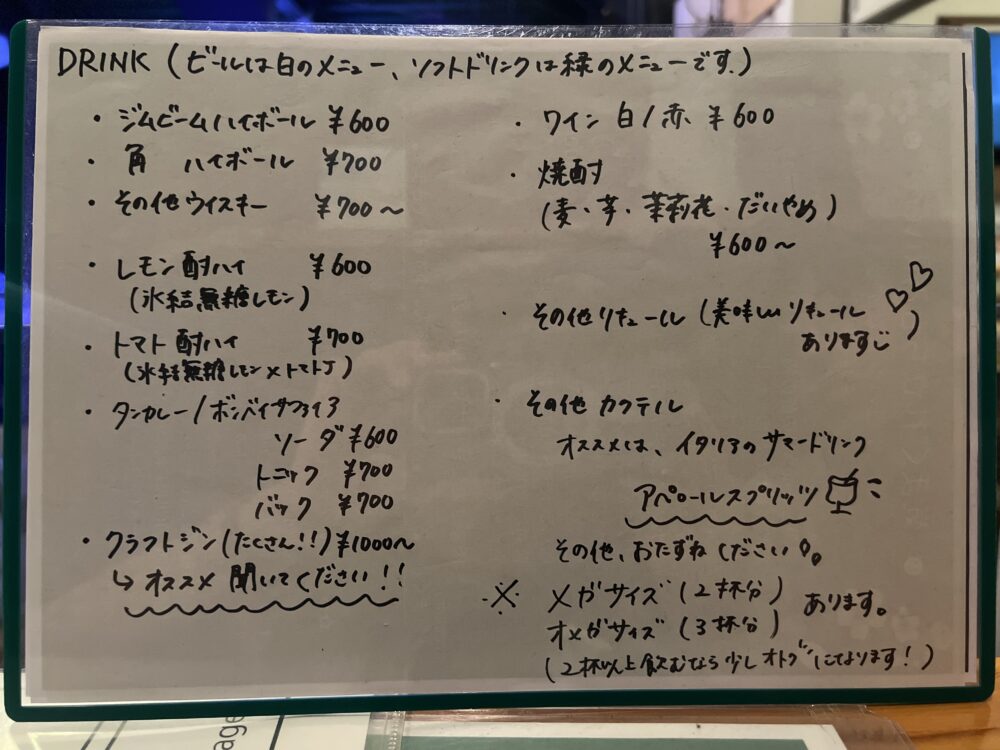 DRINK (ビールは白のメニュー、ソフトドリンクは緑のメニューです。)
・ジムビームハイボール ¥600
・角 ハイボール ¥700
・その他ウイスキー ¥700〜
・レモン酎ハイ ¥600
(氷結無糖レモン)
・トマト酎ハイ ¥700
(氷結無糖レモン×トマトJ)
・タンカレー/ボンベイサファイア
ソーダ ¥600
トニック ¥700
バック ¥700
・クラフトジン(たくさん!!) ¥1000〜
↳オススメ 聞いてください!!
・ワイン 白/赤 ¥600
・焼酎
(麦・芋・茉莉花・だいやめ)
¥600〜
・その他リキュール (美味しいリキュール
あります)
・その他カクテル
オススメは、イタリアのサマードリンク
アペロールスプリッツ
その他、おたずねください。
※ メガサイズ (2杯分) あります。
オメガサイズ (3杯分)
(2杯以上飲むなら少しオトクになります!)
age